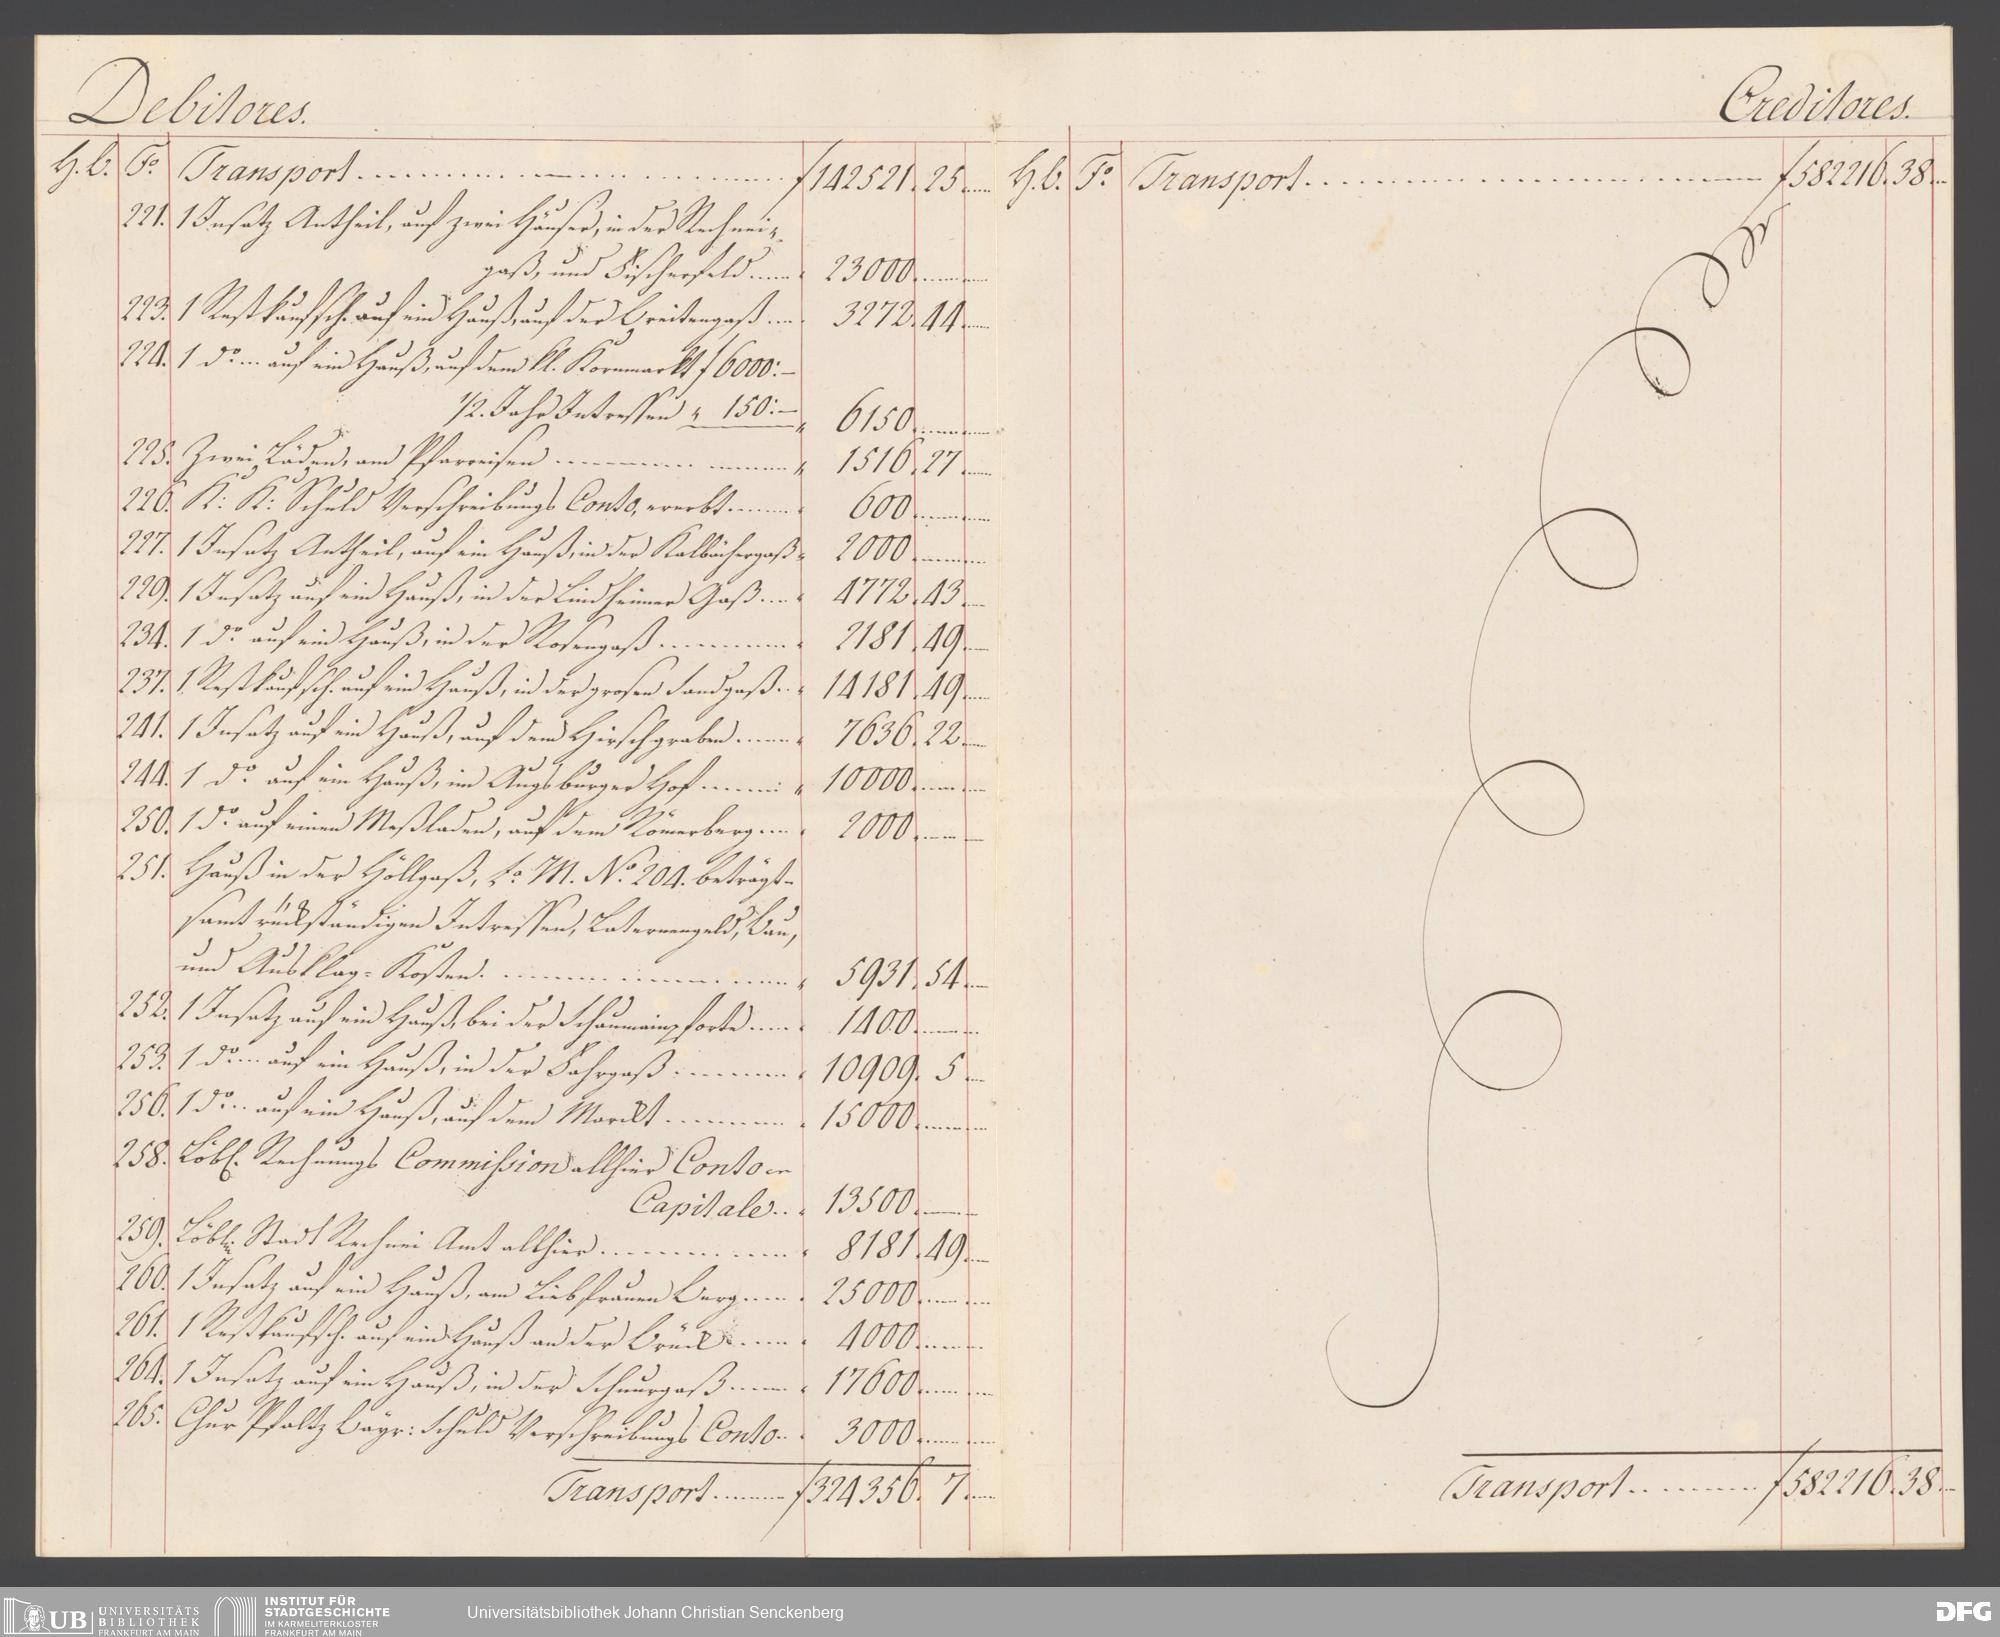 Debitores.
H. b. Fo. Transport f 142521. 25.
221. 1 Insatz Antheil, auf zwei Häuser, in der Rechnei-
gaß, und Fischerfeld " 23000.
223. 1 Restkaufsch. auf ein Hauß, auf der Breitengaß " 3272. 44.
224. 1 do. auf ein Hauß, auf dem kl. Kornmarkt f 6000:—
1/2. Jahr Intressen " 150:— " 6150.
225. Zwei Läden, am Pfarreisen " 1516. 27.
226. K: K: Schuld Verschreibungs Conto, ererbt " 600.
227. 1 Insatz Antheil, auf ein Hauß, in der Kalbächergaß " 2000.
229. 1 Insatz auf ein Hauß, in der Lindheimer Gaß " 4772. 43.
234. 1 do. auf ein Hauß, in der Rosengaß " 2181. 49.
237. 1 Restkaufsch. auf ein Hauß, in der grosen Sandgaß " 14181. 49.
241. 1 Insatz auf ein Hauß, auf dem Hirschgraben " 7636. 22.
244. 1 do. auf ein Hauß, im Augsburger Hof " 10000.
250. 1 do. auf einen Meßladen, auf dem Römerberg " 2000.
251. Hauß in der Höllgaß, La. M. No. 204. beträgt-
samt rückständigen Intressen, Laternengeld, Bau,
und Ausklag-Kosten. " 5931. 54.
252. 1 Insatz auf ein Hauß, bei der Schaumainpforte " 1400.
253. 1 do. auf ein Hauß, in der Fahrgaß " 10909. 5.
256. 1 do. auf ein Hauß, auf dem Marckt " 15000.
258. Löbl. Rechnungs Commission allhier Conto
Capitale " 13500.
259. Löbl. Stadt Rechnei Amt allhier " 8181. 49.
260. 1 Insatz auf ein Hauß, am Liebfrauen Berg " 25000.
261. 1 Restkaufsch. auf ein Hauß an der Brück " 4000.
264. 1 Insatz auf ein Hauß, in der Schnurgaß " 17600.
265. Chur Pfaltz Bayr: Schuld Verschreibungs Conto " 3000.
Transport f 324356. 7.
Creditores.
H. b. Fo. Transport f 582216. 38.
Transport f 582216. 38.
UB UNIVERSITÄTS
BIBLIOTHEK
FRANKFURT AM MAIN
INSTITUT FÜR
STADTGESCHICHTE
IM KARMELITERKLOSTER
FRANKFURT AM MAIN
Universitätsbibliothek Johann Christian Senckenberg
DFG